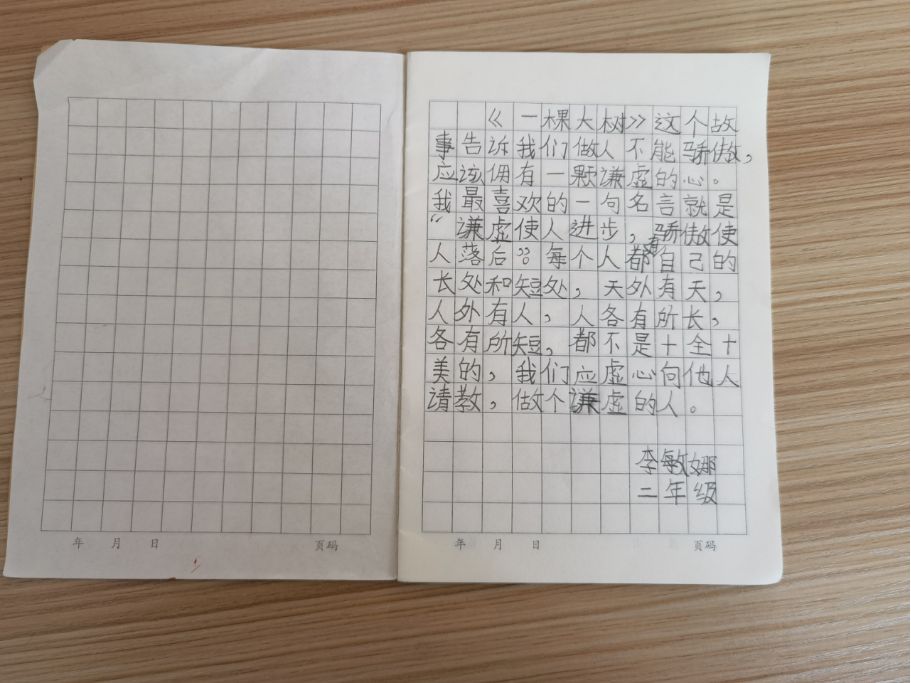 《一棵大树》这个故
事告诉我们做人不能骄傲，
应该拥有一颗谦虚的心。
我最喜欢的一句名言就是
“谦虚使人进步，骄傲使
人落后”。每个人都有自己的
长处和短处，天外有天，
人外有人，人各有所长，
各有所短，都不是十全十
美的，我们应虚心向他人
请教，做个谦虚的人。
李敏娜
二年级
年 月 日 页码
年 月 日 页码